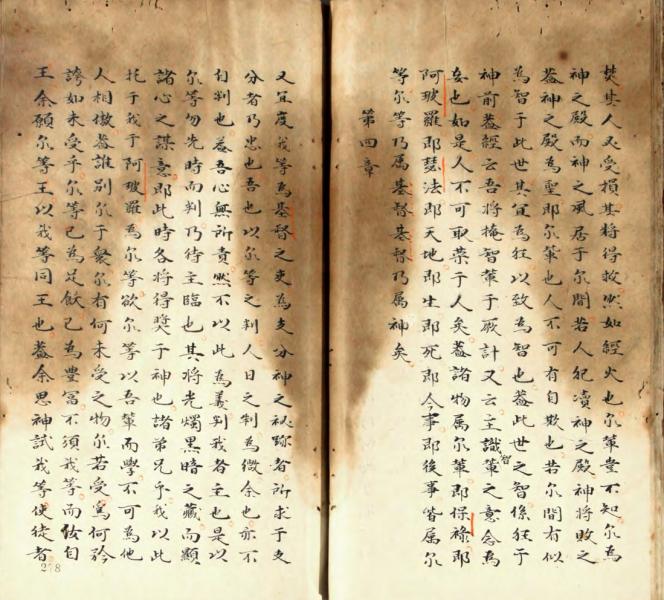 焚其人又受損其將得救然如經火也尔輩豈不知尔為
神之殿而神之風居于尔間若人犯瀆神之殿神將敗之
葢神之殿為聖即尔輩也人不可有自欺也若尔間有似
為智于此世其宜為狂以致為智也葢此世之智係狂于
神前葢經云吾將掩智輩于厥計又云主識智輩之意念為
妄也如是人不可取榮于人矣葢諸物属尔輩即保祿即
阿玻羅即瑟法即天地即生即死即今事即後事皆属尔
等尔等乃属基督基督乃属神矣
第四章
又宜度我等為基督之吏為支分神之祕跡者所求于支
分者乃忠也吾也以尔等之判人日之判為微余也亦不
自判也葢吾心無所責然不以此為義判我者主也是以
尔等勿先時而判乃待主臨也其將光燭黑暗之藏而顯
諸心之謀意即此時各將得奬于神也諸弟兄予我以此
托于我于阿玻羅為尔等欲尔等以吾輩而學不可為他
人相傲葢誰別尔于衆尔有何未受之物尔若受焉何矜
誇如未受乎尔等已為足飫已為豊富不須我等而伩自
王余願尔等王以我等同王也葢余思神試我等使徒者
278